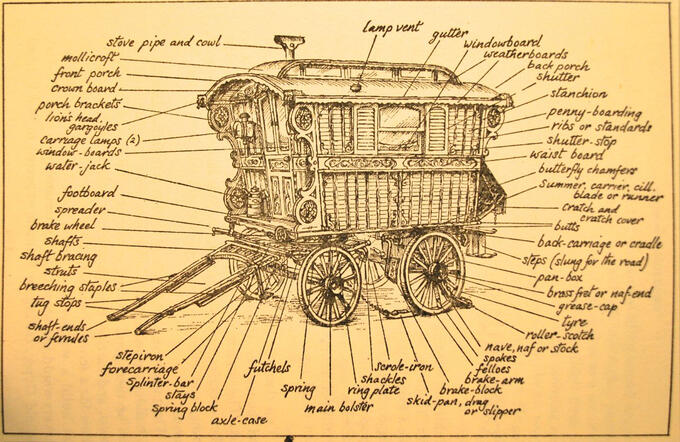 stove pipe and cowl
mollicroft
front porch
crown board
porch brackets
lion's head,
gargoyles
carriage lamps (2)
window-boards
water-jack
footboard
spreader
brake wheel
shafts
shaft bracing
struts
breeching staples
tug stops
shaft-ends
or ferrules
stepiron
forecarriage
splinter-bar
stays
spring block
axle-case
futchels
spring
main bolster
lamp vent
gutter
windowboard
weatherboards
back porch
shutter
stanchion
penny-boarding
ribs or standards
shutter-stop
waist board
butterfly chamfers
Summer, carrier, cill,
blade or runner
cratch and
cratch cover
butts
back-carriage or cradle
steps (slung for the road)
pan-box
brass fret or naf-end
grease-cap
tyre
roller-scotch
nave, naf or stock
spokes
felloes
brake-arm
brake-block
skid-pan, drag
or slipper
scrole-iron
shackles
ring plate